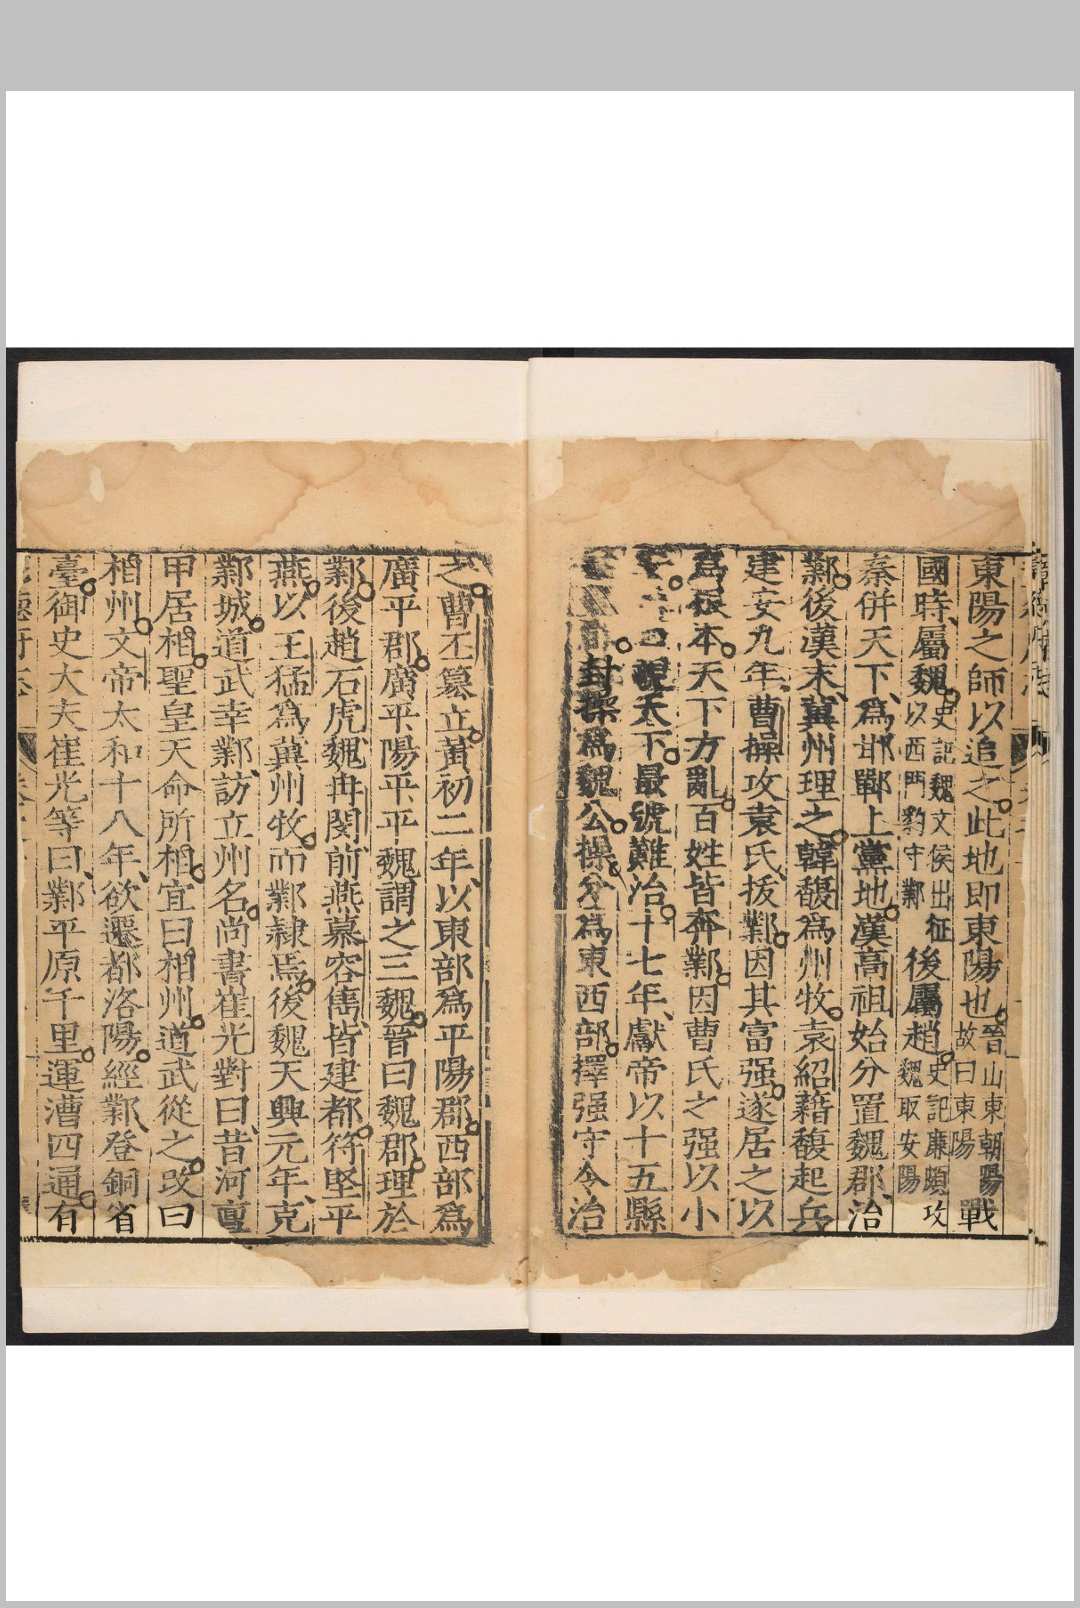 東陽之師以追之此地即東陽也晉山東朝陽故曰東陽戰
國時屬魏史記魏文侯出征以西門豹守鄴後屬趙史記廉頗攻魏取安陽
秦併天下爲邯鄲上黨地漢高祖始分置魏郡治
鄴後漢末冀州理之韓馥爲州牧袁紹藉馥起兵
建安九年曹操攻袁氏拔鄴因其富强遂居之以
爲根本天下方亂百姓皆奔鄴因曹氏之强以小
覬天下最號難治十七年獻帝以十五縣
封操爲魏公操分爲東西部擇强守令治
之曹丕篡立黃初二年以東部爲平陽郡西部爲
廣平郡廣平陽平平魏謂之三魏晉曰魏郡理於
鄴後趙石虎魏冉閔前燕慕容儁皆建都符堅平
燕以王猛爲冀州牧而鄴隷焉後魏天興元年克
鄴城道武幸鄴訪立州名尚書崔光對曰昔河亶
甲居相聖皇天命所相宜曰相州道武從之改曰
相州文帝太和十八年欲遷都洛陽經鄴登銅雀
臺御史大夫崔光等曰鄴平原千里運漕四通有